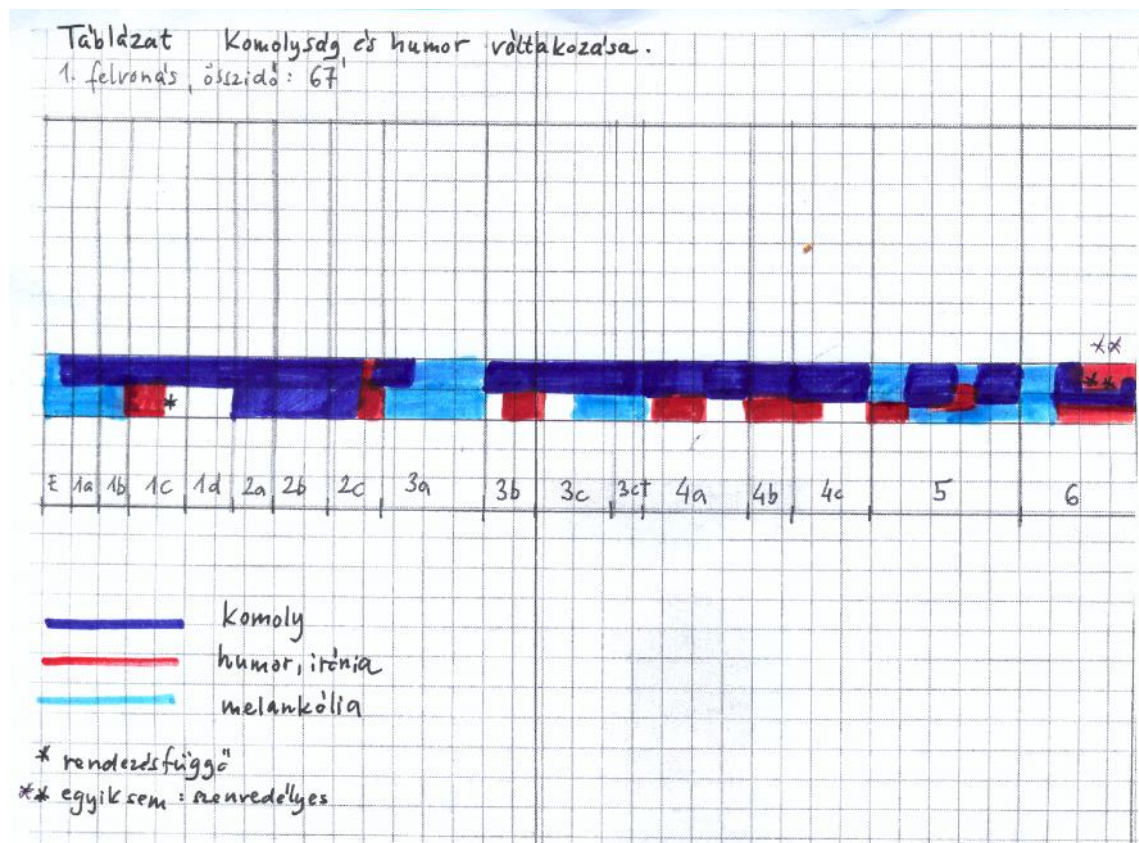 Táblázat Komolyság és humor váltakozása.
1. felvonás, összidő: 67'
**
**
*
E 1a 1b 1c 1d 2a 2b 2c 3a 3b 3c 3c† 4a 4b 4c 5 6
komoly
humor, irónia
melankólia
* rendezésfüggő
** egyik sem: szenvedélyes